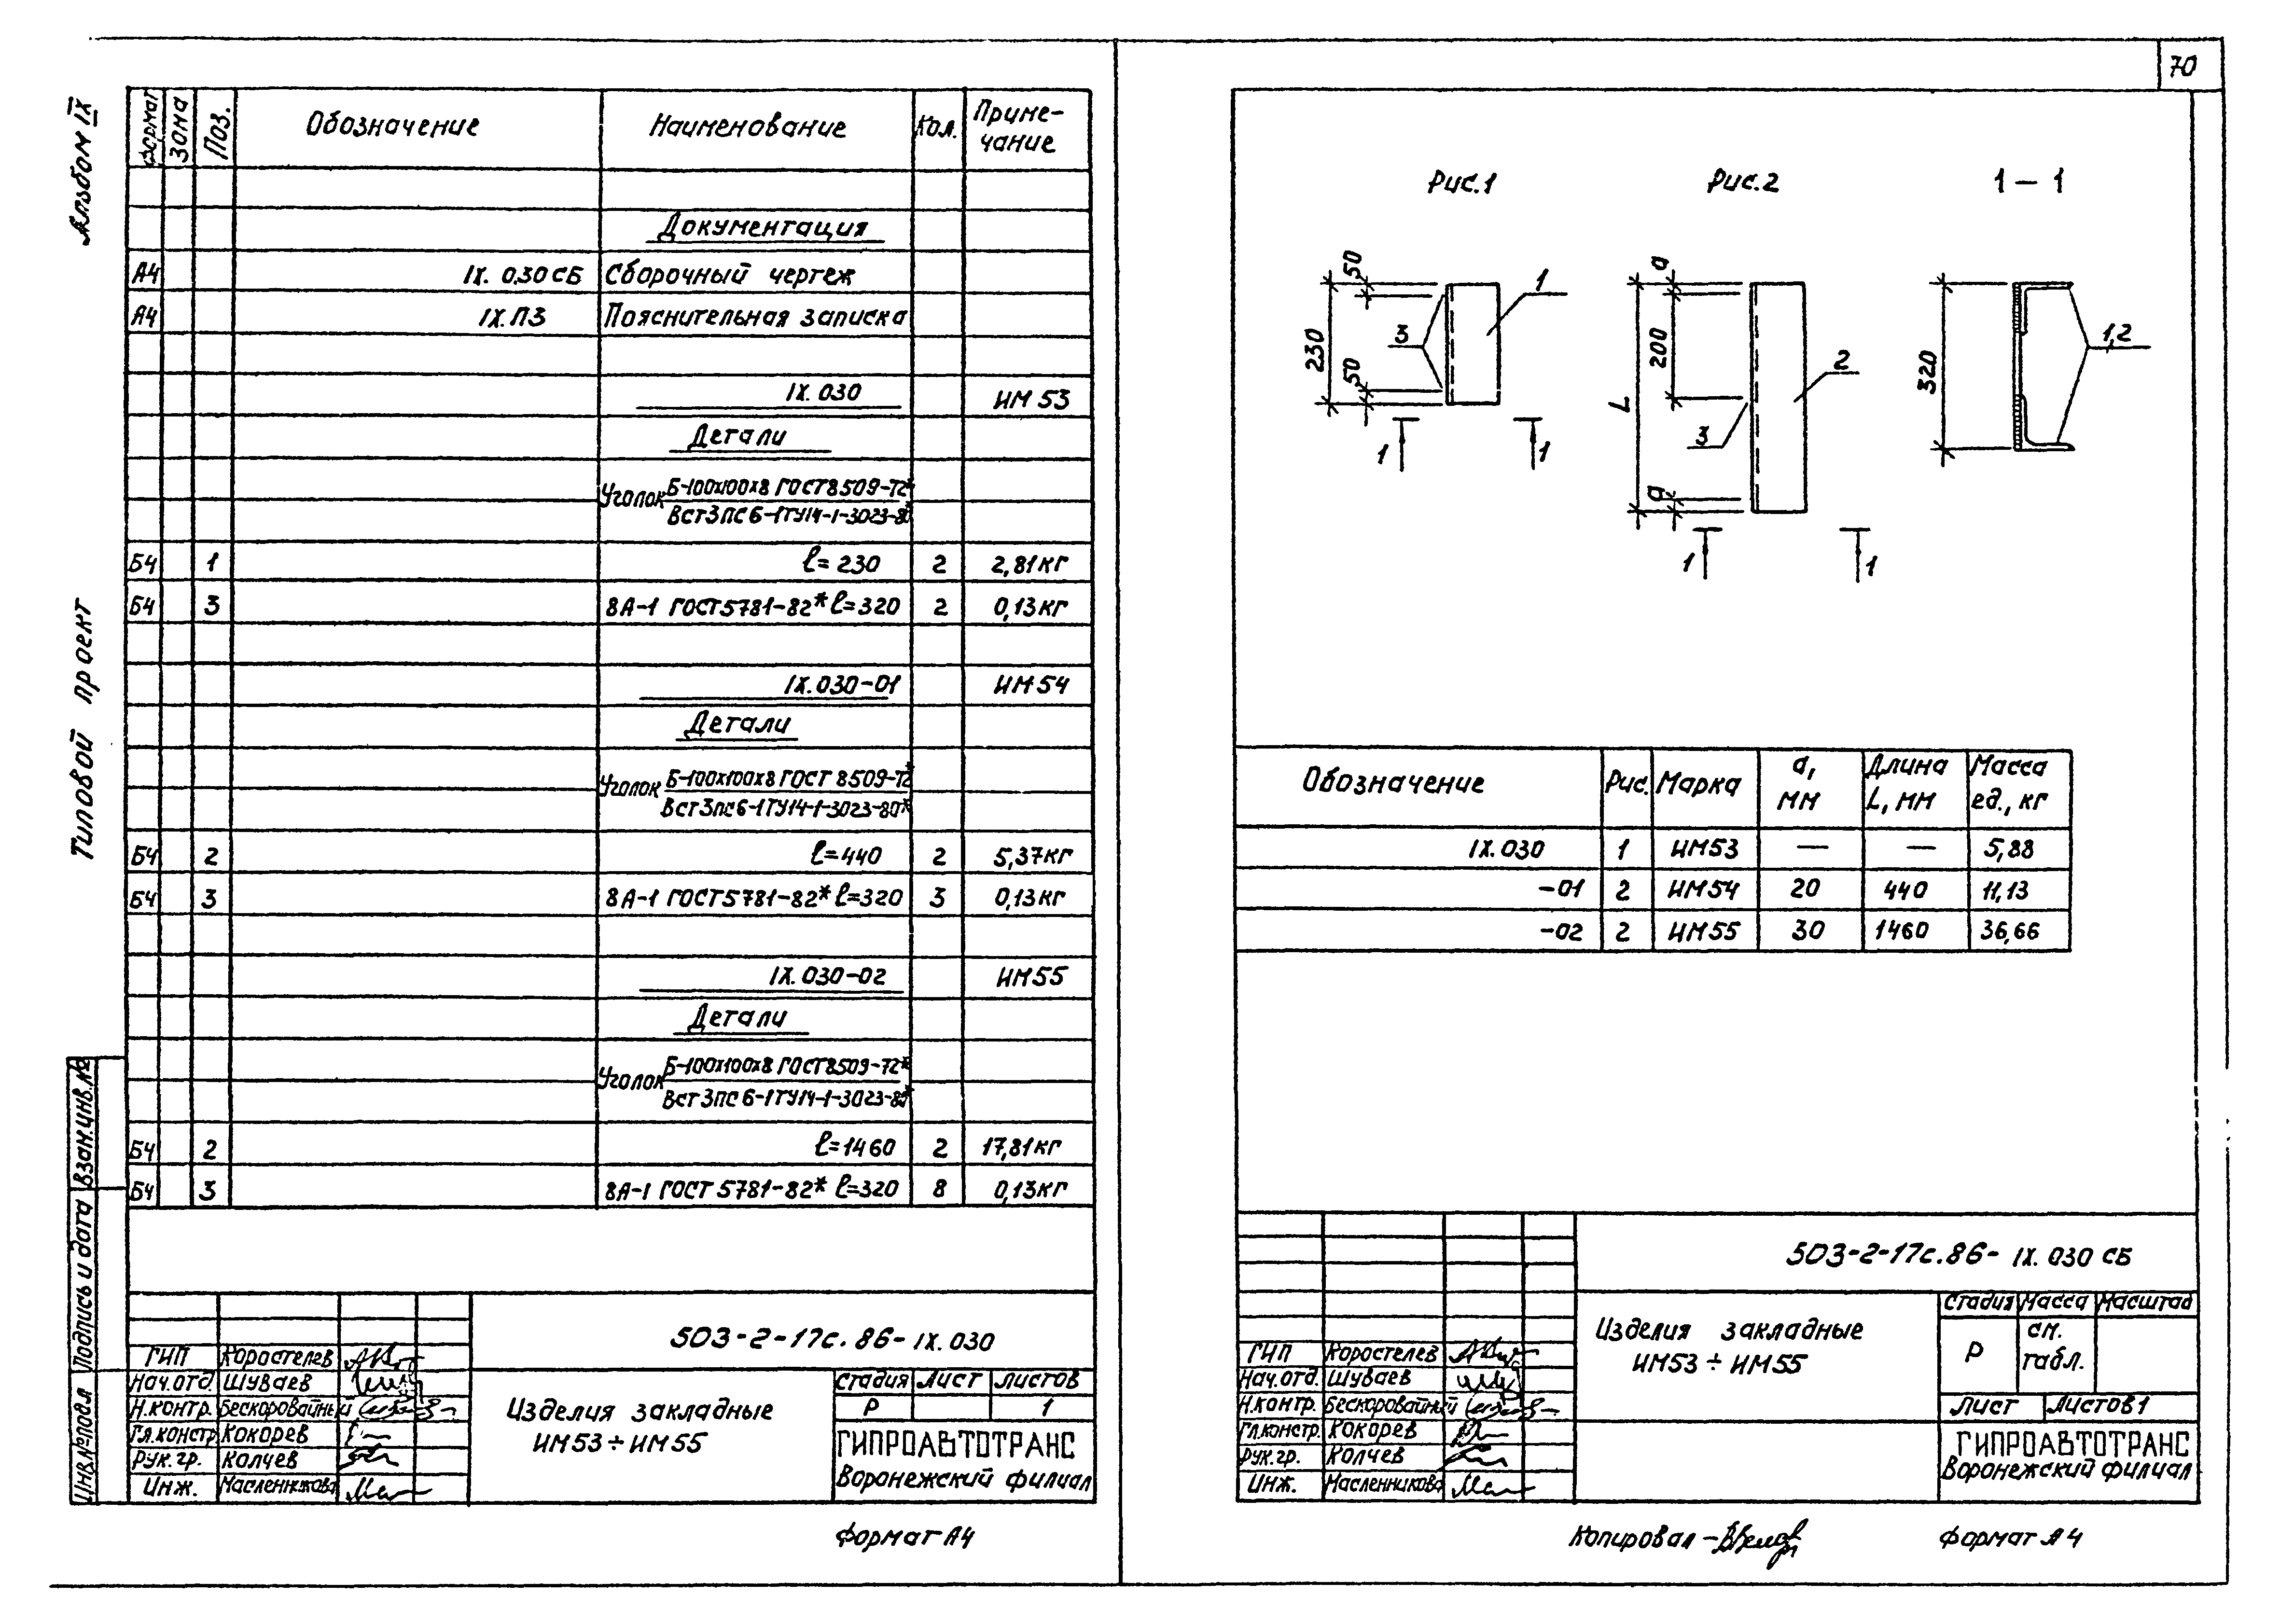 70
Альбом IX
Типовой проект
Взам.инв.№
Подпись и дата
Инв.№подл
Формат Зона Поз. Обозначение Наименование Кол. Приме-
чание
Документация
А4 IX.030СБ Сборочный чертеж
А4 IX.ПЗ Пояснительная записка
IX.030 ИМ53
Детали
Уголок Б-100х100х8 ГОСТ8509-72*
ВСт3ПС6-1ТУ14-1-3023-80*
Б4 1 ℓ=230 2 2,81кг
Б4 3 8А-1 ГОСТ5781-82* ℓ=320 2 0,13кг
IX.030-01 ИМ54
Детали
Уголок Б-100х100х8 ГОСТ 8509-72*
ВСт3ПС6-1ТУ14-1-3023-80*
Б4 2 ℓ=440 2 5,37кг
Б4 3 8А-1 ГОСТ5781-82* ℓ=320 3 0,13кг
IX.030-02 ИМ55
Детали
Уголок Б-100х100х8 ГОСТ8509-72*
ВСт3ПС6-1ТУ14-1-3023-80*
Б4 2 ℓ=1460 2 17,81кг
Б4 3 8А-1 ГОСТ 5781-82* ℓ=320 8 0,13кг
503-2-17с.86- IX.030
ГИП Коростелев
Нач.отд. Шуваев
Н.контр. Бескоровайный
Гл.констр. Кокорев
Рук.гр. Колчев
Инж. Масленникова
Изделия закладные
ИМ53 ÷ ИМ55
Стадия Лист Листов
Р 1
ГИПРОАВТОТРАНС
Воронежский филиал
Формат А4
Рис.1 Рис.2 1 – 1
50
230
50
3
1
1 1
а
200
L
а
3
2
1 1
320
1,2
Обозначение Рис. Марка а,
мм Длина
L, мм Масса
ед., кг
IX.030 1 ИМ53 — — 5,88
-01 2 ИМ54 20 440 11,13
-02 2 ИМ55 30 1460 36,66
503-2-17с.86- IX.030 СБ
ГИП Коростелев
Нач.отд. Шуваев
Н.контр. Бескоровайный
Гл.констр. Кокорев
Рук.гр. Колчев
Инж. Масленникова
Изделия закладные
ИМ53 ÷ ИМ55
Стадия Масса Масштаб
Р см.
табл.
Лист Листов 1
ГИПРОАВТОТРАНС
Воронежский филиал
Копировал –
Формат А4